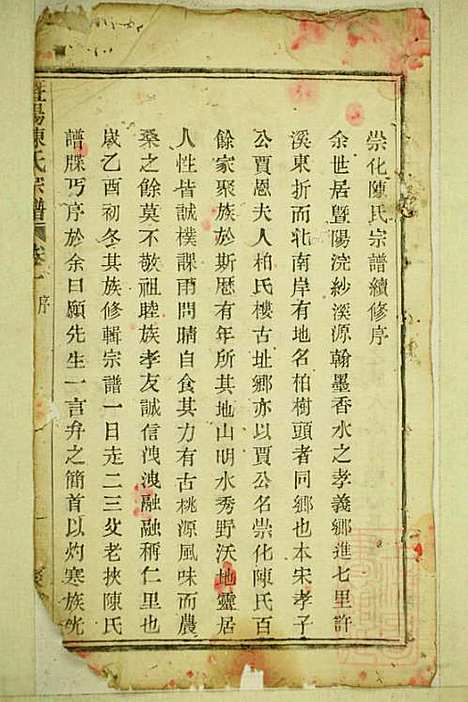 崇化陳氏宗譜續修序
余世居暨陽浣紗溪源翰墨香水之孝義鄉進七里許
溪東折而北南岸有地名柏樹頭者同鄉也本宋孝子
公賈恩夫人柏氏樓古址鄉亦以賈公名崇化陳氏百
餘家聚族於斯曆有年所其地山明水秀野沃地靈居
人性皆誠樸課雨問晴自食其力有古桃源風味而農
桑之餘莫不敬祖睦族孝友誠信洩洩融融稱仁里也
歲乙酉初冬其族修輯宗譜一日走二三父老挾陳氏
譜牒丐序於余曰願先生一言弁之簡首以灼寒族光
暨陽陳氏宗譜 序